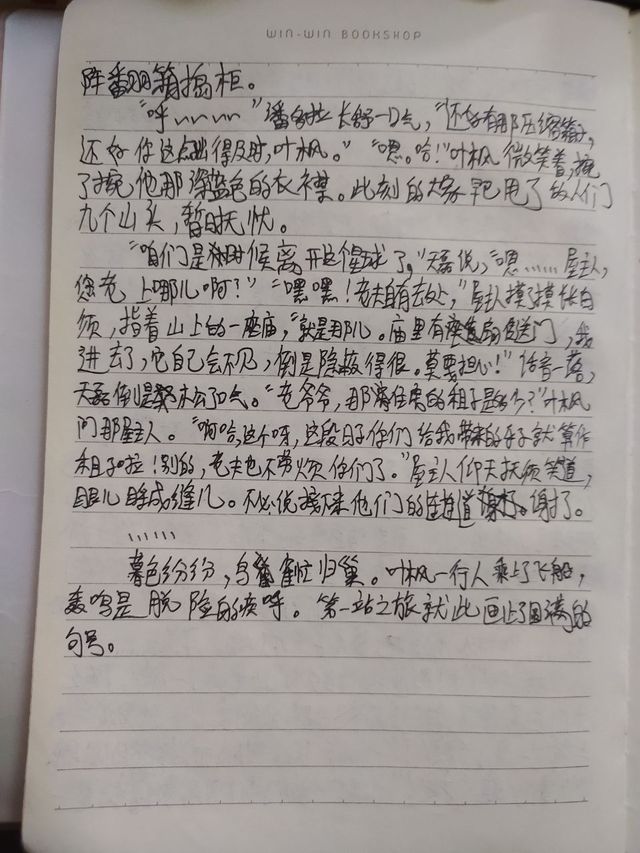 WIN-WIN BOOKSHOP
阵翻箱捣柜。
“呼、、、、、、”潘多拉长舒一口气，“还好有那压缩箱子，
还好你这点出得及时，叶枫。”“嗯。哈！”叶枫微笑着，挽
了挽他那深蓝色的衣襟。此刻的大家早把甩了敌人们
九个山头，暂时无忧。
“咱们是时候离开这个星球了，”天磊说，“嗯……屋主人，
您老上哪儿啊？”“嘿嘿！老夫自有去处，”屋主摸了摸长白
须，指着山上的一座庙，“就是那儿。庙里有座传送门，我
进去了，它自己会不见，倒是隐蔽得很。莫要担心！”话音一落，
天磊倒是松了口气。“老爷爷，那您住房的租子是多少？”叶枫
问那屋主人。“啊哈，这个呀，这段日子你们给我带来的乐子就算作
租子啦！别的，老夫也不劳烦你们了。”屋主人仰天抚须笑道，
眼儿眯成缝儿。不必说接下来他们的连连道谢了。
……
暮色纷纷，鸟雀忙归巢。叶枫一行人乘上了飞船，
轰鸣是脱险的欢呼。第一站之旅就此画上了圆满的
句号。